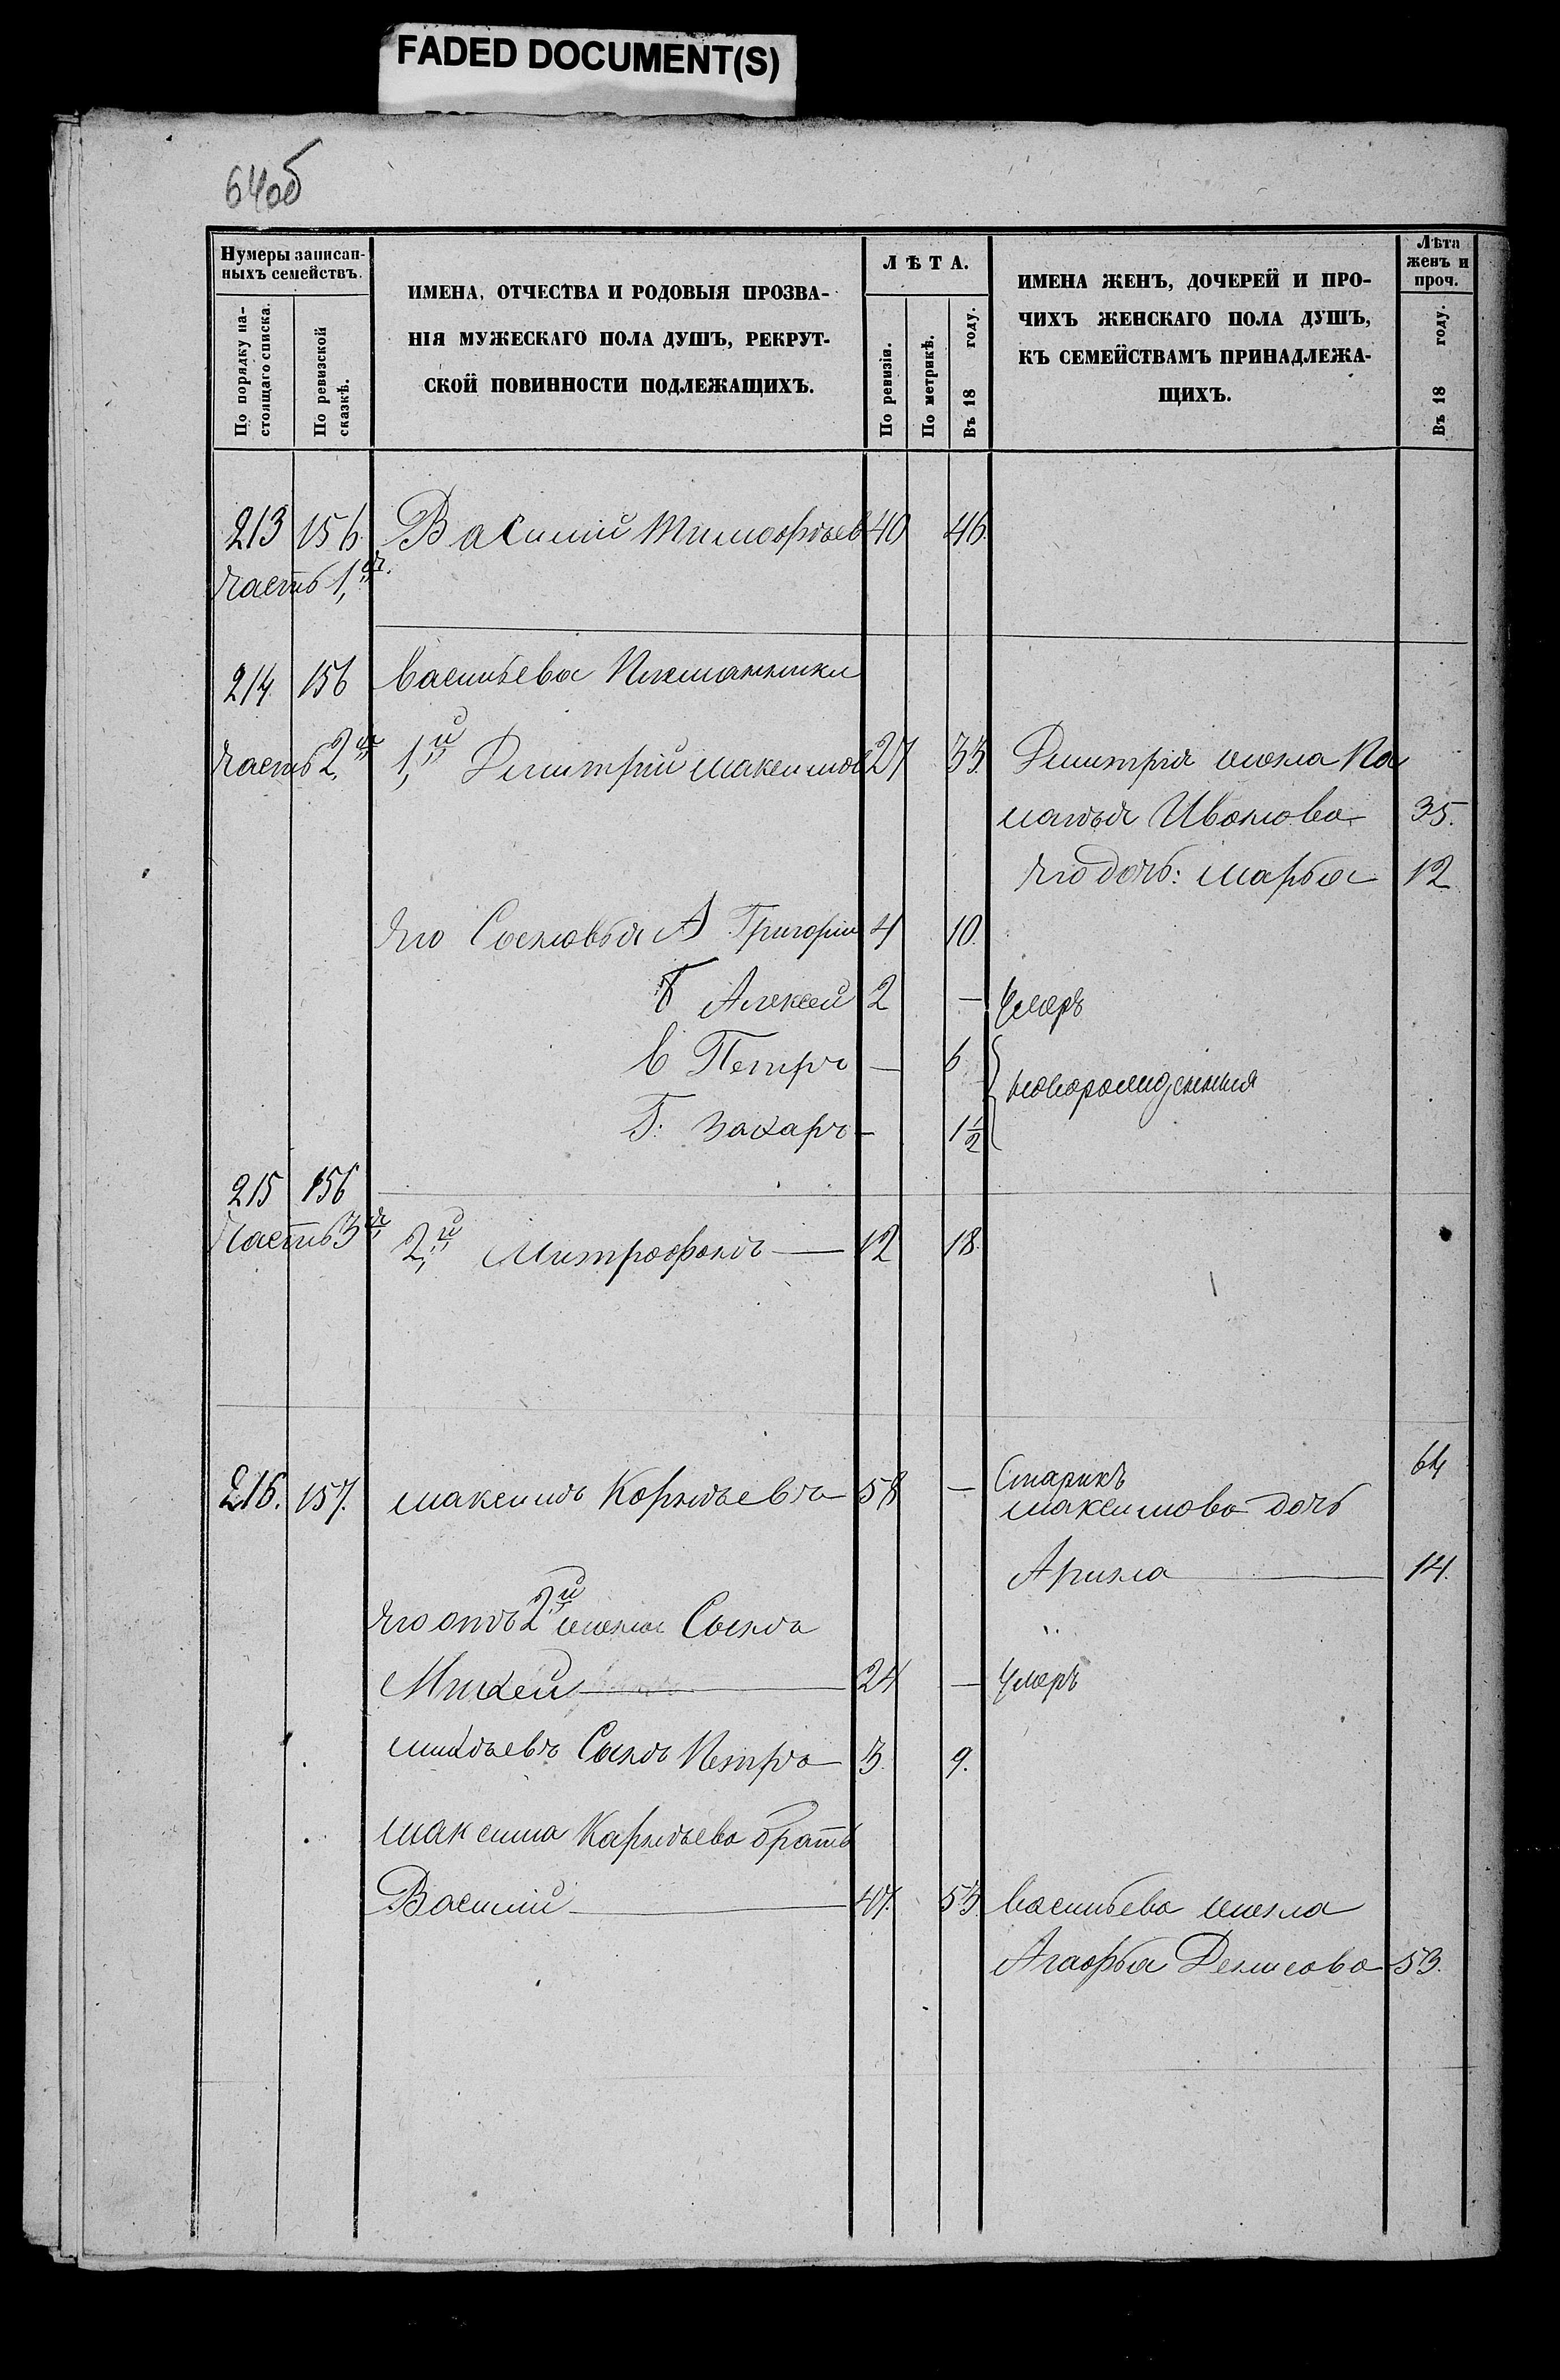 FADED DOCUMENT(S)
64об
Нумеры записан-
ныхъ семействъ.
По порядку на-
стоящаго списка.
По ревизской
сказкѣ.
ИМЕНА, ОТЧЕСТВА И РОДОВЫЯ ПРОЗВА-
НІЯ МУЖЕСКАГО ПОЛА ДУШЪ, РЕКРУТ-
СКОЙ ПОВИННОСТИ ПОДЛЕЖАЩИХЪ.
ЛѢТА.
По ревизіи.
По метрикѣ.
Въ 18 году.
ИМЕНА ЖЕНЪ, ДОЧЕРЕЙ И ПРО-
ЧИХЪ ЖЕНСКАГО ПОЛА ДУШЪ,
КЪ СЕМЕЙСТВАМЪ ПРИНАДЛЕЖА-
ЩИХЪ.
Лѣта
женъ и
проч.
Въ 18 году.
213 156. Василий Тимофѣев 40 46.
часть 1,я.
214 156 Васильева Племянники
часть 2,я 1,й Димитрий Максимов 27 33. Димитрія жена Ма
ланья Иванова 35.
Его дочь: Марѳа 12
Его Сыновья А Григорий 4 10.
Б Алексей 2 — Умеръ
В Петръ — 6
новорожденныя
Г. Захаръ — 1½
215 156
часть 3,я 2,й Митрофанъ — 12 18.
216. 157. Максимъ Корнѣевъ 58 — Старикъ 64
Максимова дочь
Арина — 14.
Его отъ 2,й жены Сынъ
Михей — 24 — Умеръ
Михѣевъ Сынъ Петръ 3. 9.
Максима Карнѣева братъ
Василий — 47. 53. Васильева жена
Агафья Денисова 53.